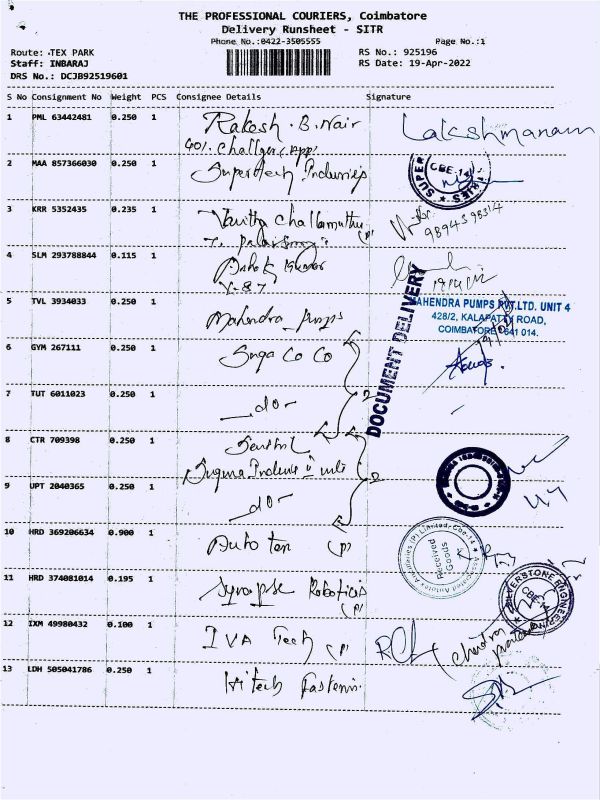 THE PROFESSIONAL COURIERS, Coimbatore
Delivery Runsheet - SITR
Phone No.:0422-3505555
Page No.:1
Route: TEX PARK
RS No.: 925196
Staff: INBARAJ
RS Date: 19-Apr-2022
DRS No.: DCJB92519601
S No Consignment No Weight PCS Consignee Details Signature
1 PML 63442481 0.250 1 Rakesh . B. Nair Lakshmanan
2 MAA 857366030 0.250 1 Supertech Industries
SUPER CBE-14
3 KRR 5352435 0.235 1 Challamuthu
9894398314
4 SLM 293788844 0.115 1 Ashok Kumar
V-87
DOCUMENT DELIVERY
5 TVL 3934033 0.250 1 Mahendra pumps
MAHENDRA PUMPS PVT.LTD. UNIT 4
428/2, KALAPATTY ROAD,
COIMBATORE 641 014.
6 GYM 267111 0.250 1 Suga Co Co
7 TUT 6011023 0.250 1 -do-
8 CTR 709398 0.250 1
9 UPT 2040365 0.250 1 -do-
10 HRD 369206634 0.900 1 Auto tex
Received
Goods
11 HRD 374081014 0.195 1 Synapse Robotics
SILVERSTONE ENGINEERING
CBE-14
12 IXM 49980432 0.100 1 IVA Tech
Chandra
13 LDH 505041786 0.250 1 Hitech Fasteners